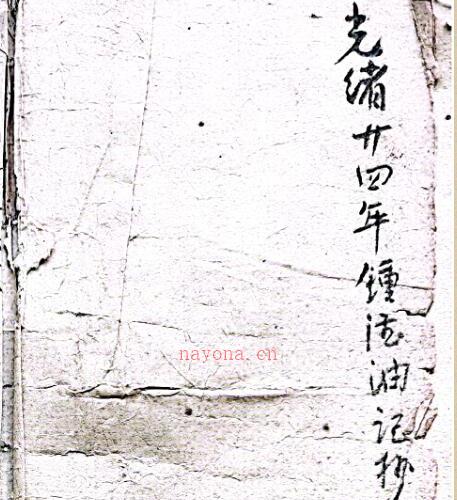 光绪廿四年鍾法油记抄
nayona.cn